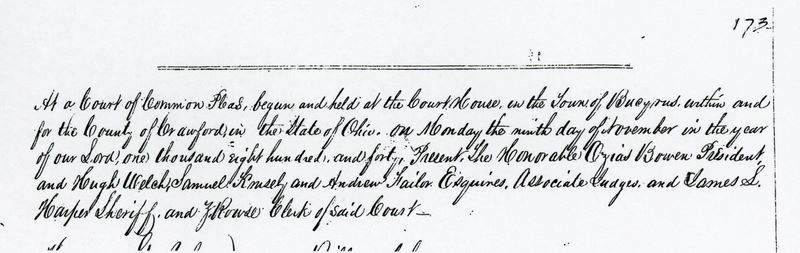 173
At a Court of Common Pleas, begun and held at the Court House, in the Town of Bucyrus, within and
for the County of Crawford, in the State of Ohio. on Monday the ninth day of November in the year
of our Lord, one thousand eight hundred, and forty, Present, The Honorable Ozias Bowen President,
and Hugh Welch, Samuel and Andrew Failor Esquires, Associate Judges. and James S.
Harper Sheriff, and Z Rowse Clerk of said Court—